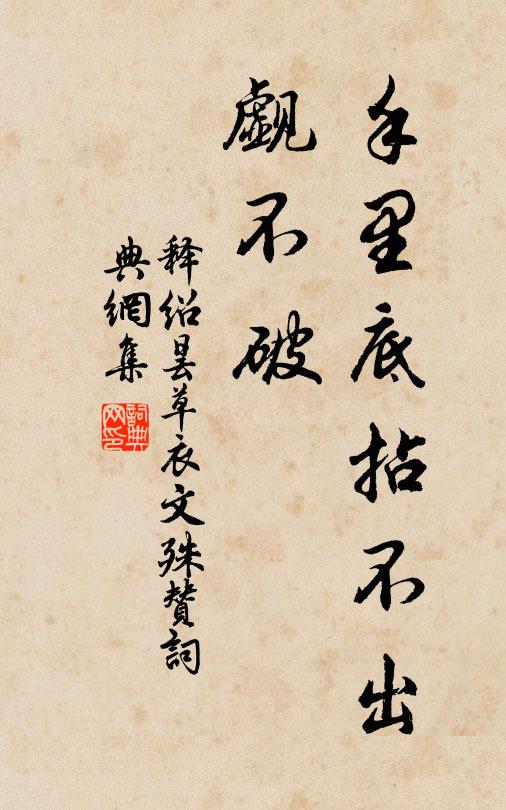 手里底拈不出
覷不破
释绍昙草衣文殊赞詞
典網集
詞典
网印